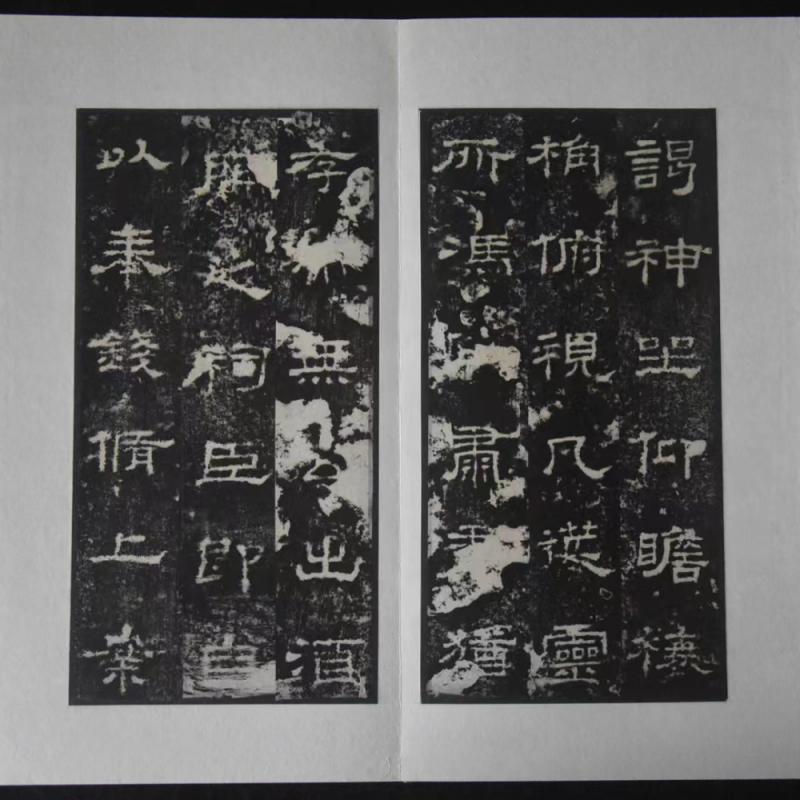 謁神坐仰瞻榱
桷俯視几筵靈
所馮肅猶
存無公出酒
脯之祠臣即自
以奉錢脩上案